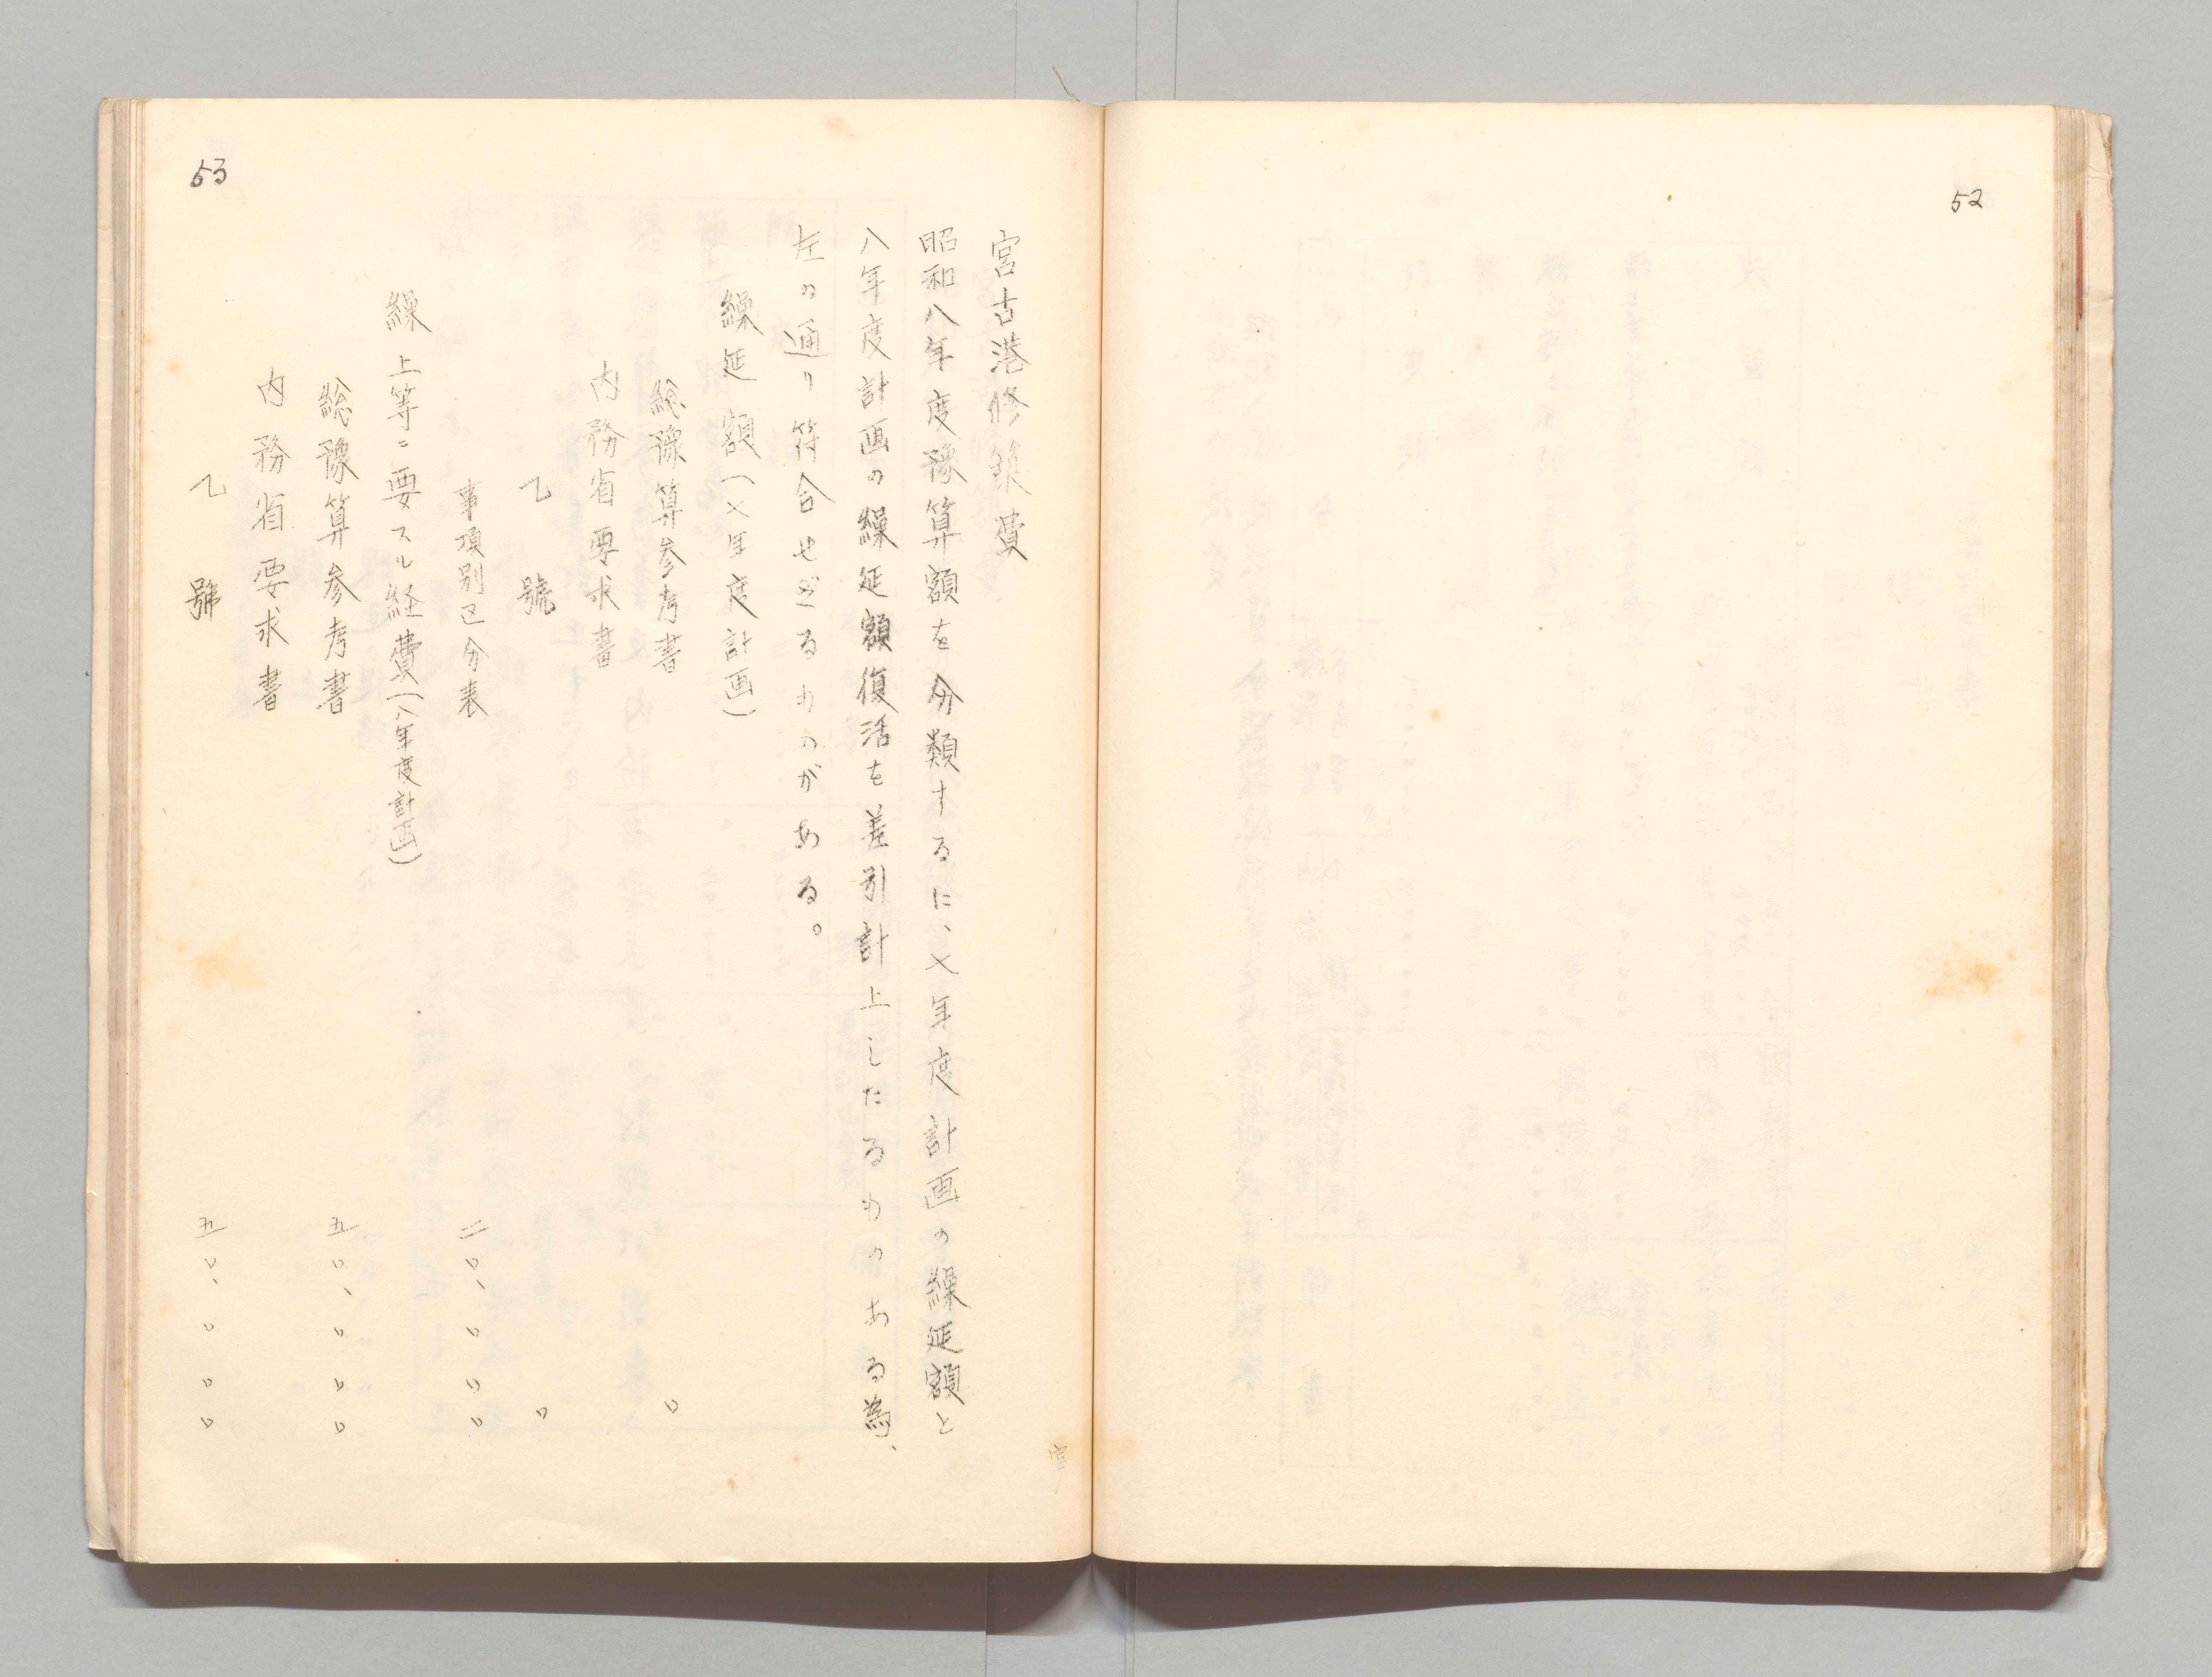 52
53
宮古港修築費
昭和八年度豫算額を分類するに、七年度計画の繰延額と
八年度計画の繰延額復活を差引計上したるものある為、
左の通り符合せざるものがある。
繰延額(七年度計画)
総豫算参考書 〇
内務省要求書
乙號 〇
事項別区分表 二〇、〇〇〇
繰上等ニ要スル経費(八年度計画)
総豫算参考書 五〇、〇〇〇
内務省要求書
乙號 五〇、〇〇〇
宮